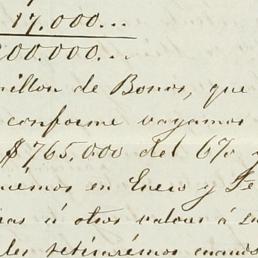 17.000...
200.000...
millon de Bonos, que
conforme vayamos
$765.000 del 6% y
en Enero y Fe
ó otros valores á su
les retirarémos cuando